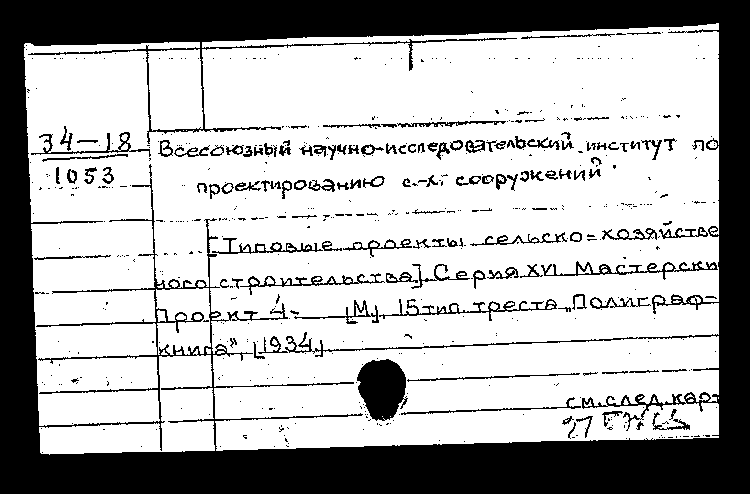 34-18
1053
Всесоюзный научно-исследовательский институт по
проектированию с.-х. сооружений
[Типовые проекты сельско-хозяйстве
ного строительства]. Серия XVI. Мастерски
Проект 4- [М], 15 тип. треста „Полиграф-
книга", [1934.]
см. след. карт